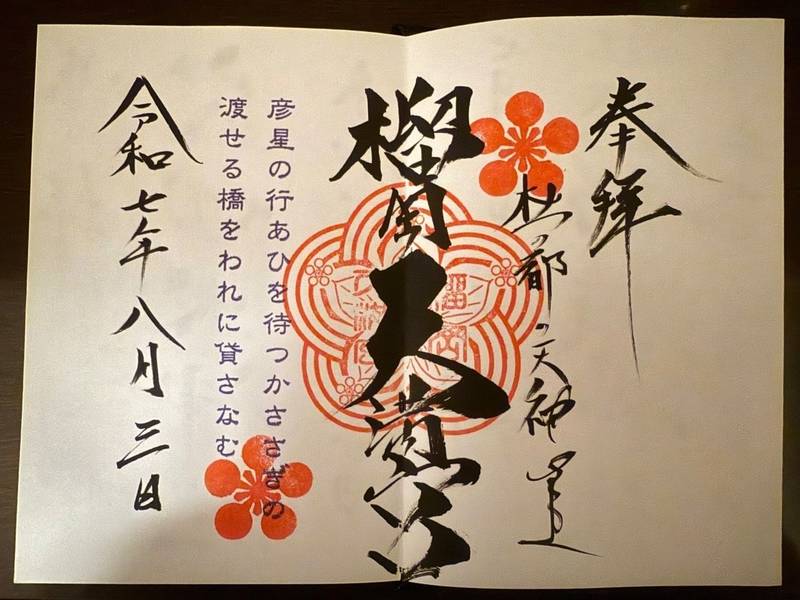 奉拝
杜の都の天神
榴岡天満宮
彦星の行あひを待つかささぎの
渡せる橋をわれに貸さなむ
令和七年八月三日